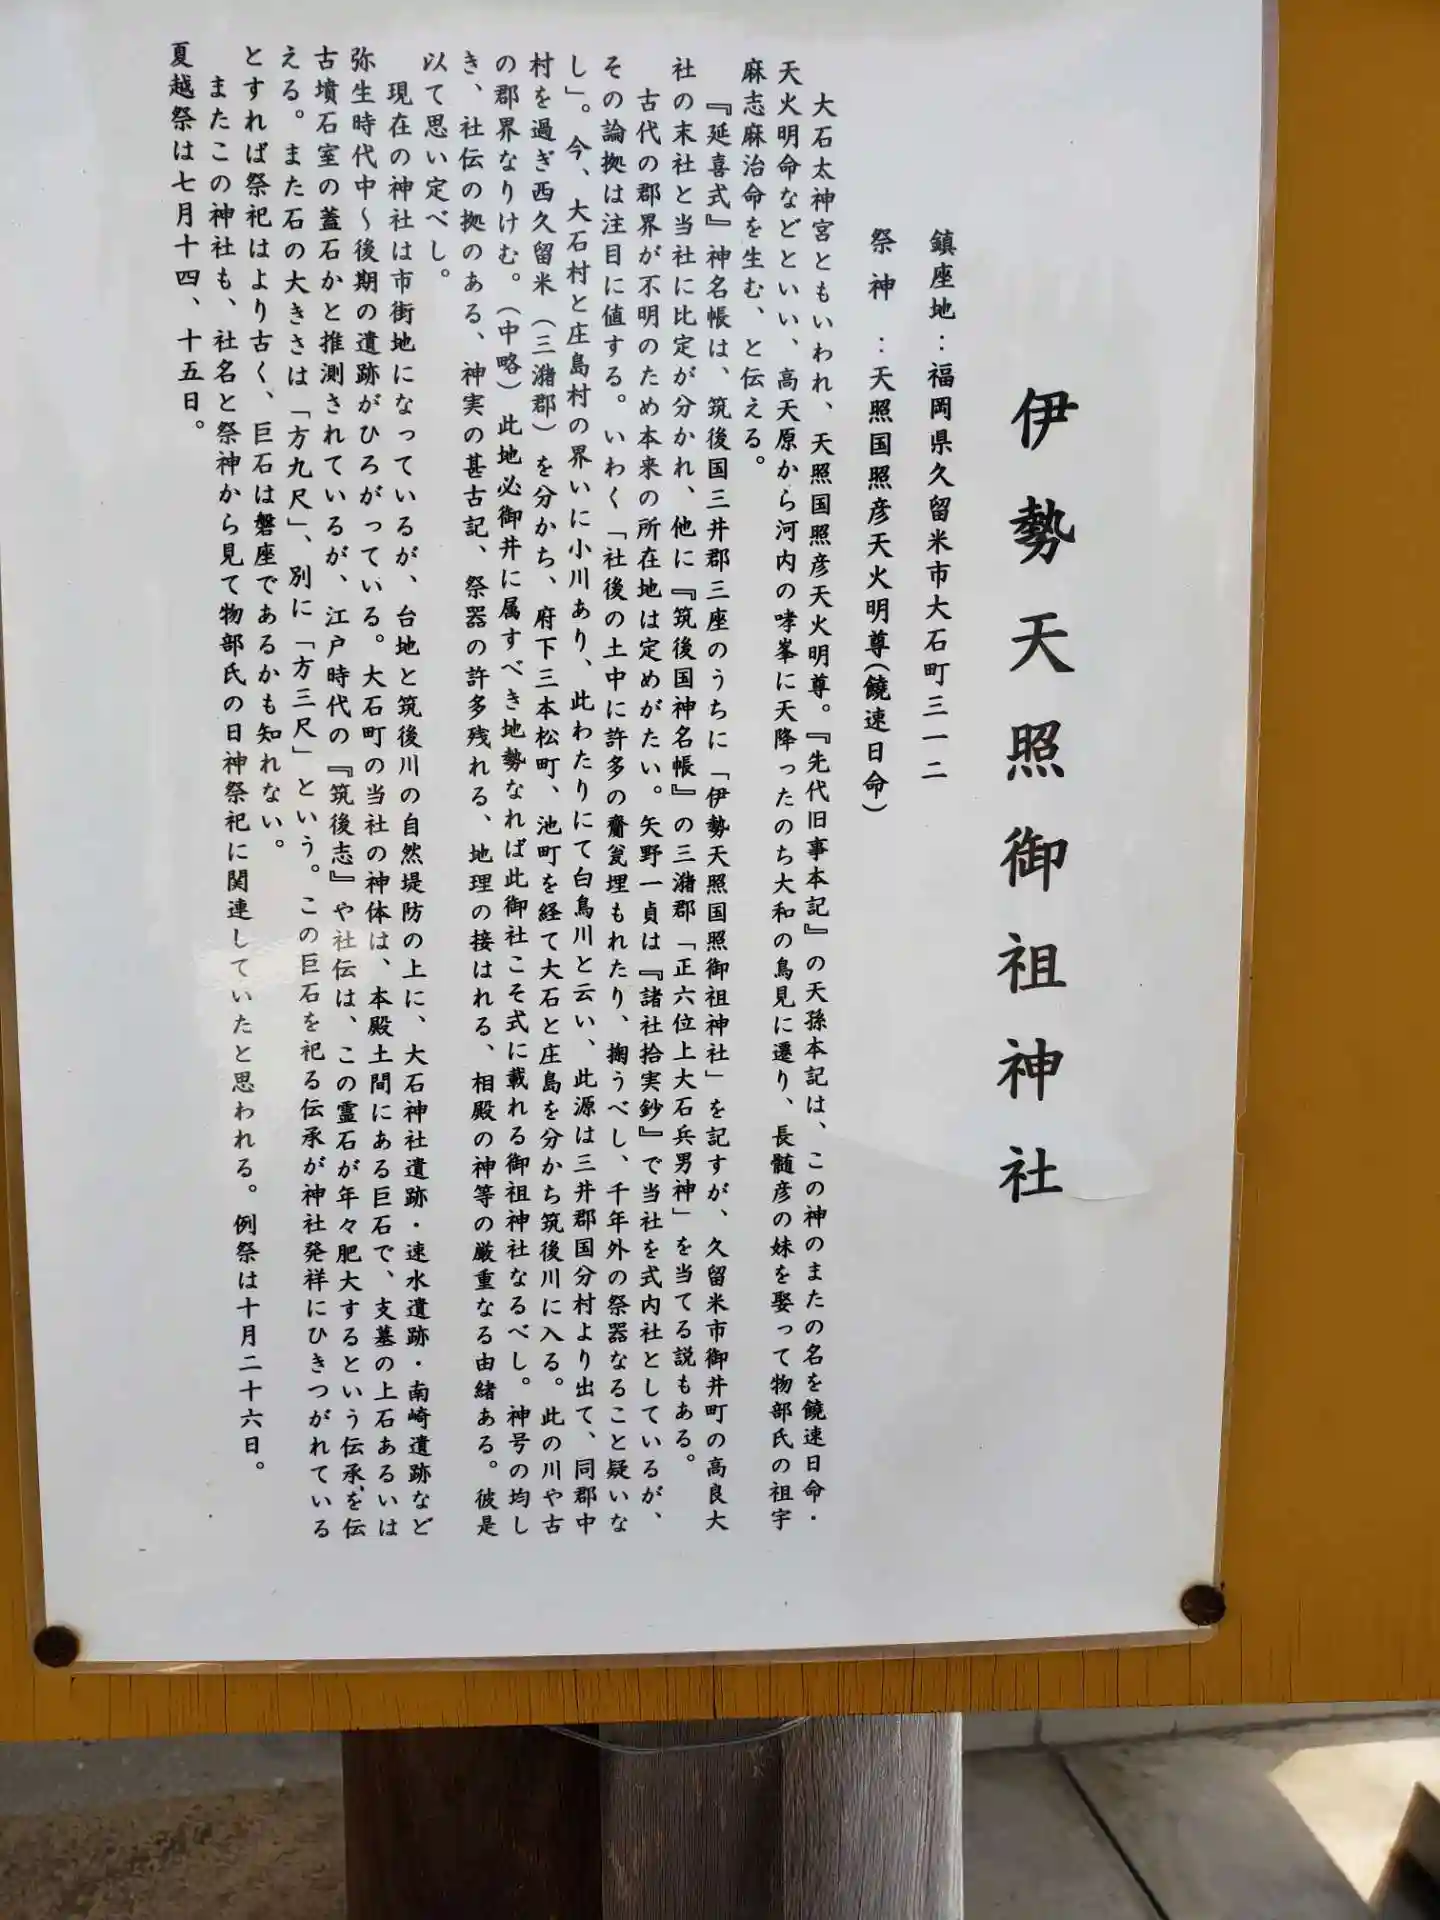 伊勢天照御祖神社
鎮座地：福岡県久留米市大石町三一二
祭神：天照国照彦天火明尊（饒速日命）
大石太神宮ともいわれ、天照国照彦天火明尊。『先代旧事本記』の天孫本記は、この神のまたの名を饒速日命・
天火明命などといい、高天原から河内の哮峯に天降ったのち大和の鳥見に遷り、長髄彦の妹を娶って物部氏の祖宇
麻志麻治命を生む、と伝える。
『延喜式』神名帳は、筑後国三井郡三座のうちに「伊勢天照国照御祖神社」を記すが、久留米市御井町の高良大
社の末社と当社に比定が分かれ、他に『筑後国神名帳』の三潴郡「正六位上大石兵男神」を当てる説もある。
古代の郡界が不明のため本来の所在地は定めがたい。矢野一貞は『諸社拾実鈔』で当社を式内社としているが、
その論拠は注目に値する。いわく「社後の土中に許多の齋瓮埋もれたり、掬うべし、千年外の祭器なること疑いな
し」。今、大石村と庄島村の界いに小川あり、此わたりにて白鳥川と云い、此源は三井郡国分村より出て、同郡中
村を過ぎ西久留米（三潴郡）を分かち、府下三本松町、池町を経て大石と庄島を分かち筑後川に入る。此の川や古
の郡界なりけむ。（中略）此地必御井に属すべき地勢なれば此御社こそ式に載れる御祖神社なるべし。神号の均し
き、社伝の拠のある、神実の甚古記、祭器の許多残れる、地理の接はれる、相殿の神等の厳重なる由緒ある。彼是
以て思い定べし。
現在の神社は市街地になっているが、台地と筑後川の自然堤防の上に、大石神社遺跡・速水遺跡・南崎遺跡など
弥生時代中～後期の遺跡がひろがっている。大石町の当社の神体は、本殿土間にある巨石で、支墓の上石あるいは
古墳石室の蓋石かと推測されているが、江戸時代の『筑後志』や社伝は、この霊石が年々肥大するという伝承を伝
える。また石の大きさは「方九尺」、別に「方三尺」という。この巨石を祀る伝承が神社発祥にひきつがれている
とすれば祭祀はより古く、巨石は磐座であるかも知れない。
またこの神社も、社名と祭神から見て物部氏の日神祭祀に関連していたと思われる。例祭は十月二十六日。
夏越祭は七月十四、十五日。